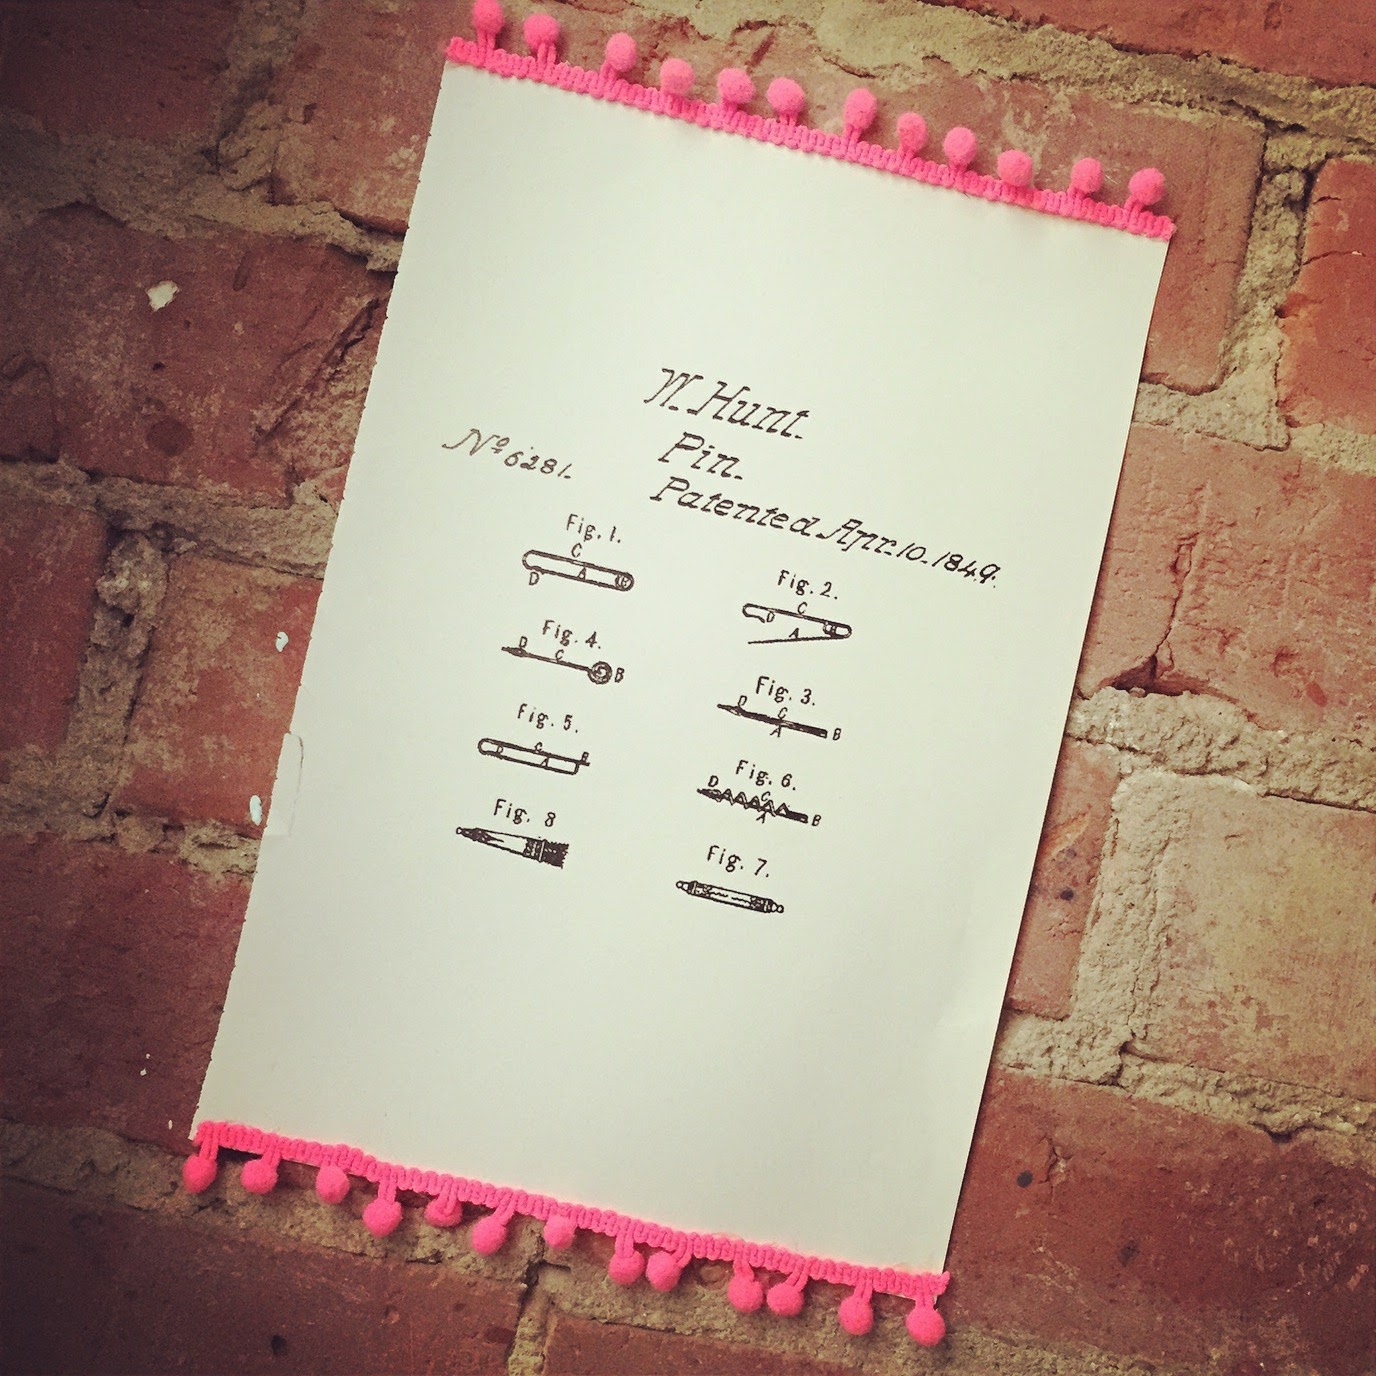 W. Hunt.
Pin.
No 6281.
Patented Apr. 10. 1849.
Fig. 1.
C
A
B
D
Fig. 2.
C
D
A
B
Fig. 4.
D
C
B
Fig. 3.
D
C
A
B
Fig. 5.
C
B
D
A
Fig. 6.
D
C
A
B
Fig. 8
Fig. 7.